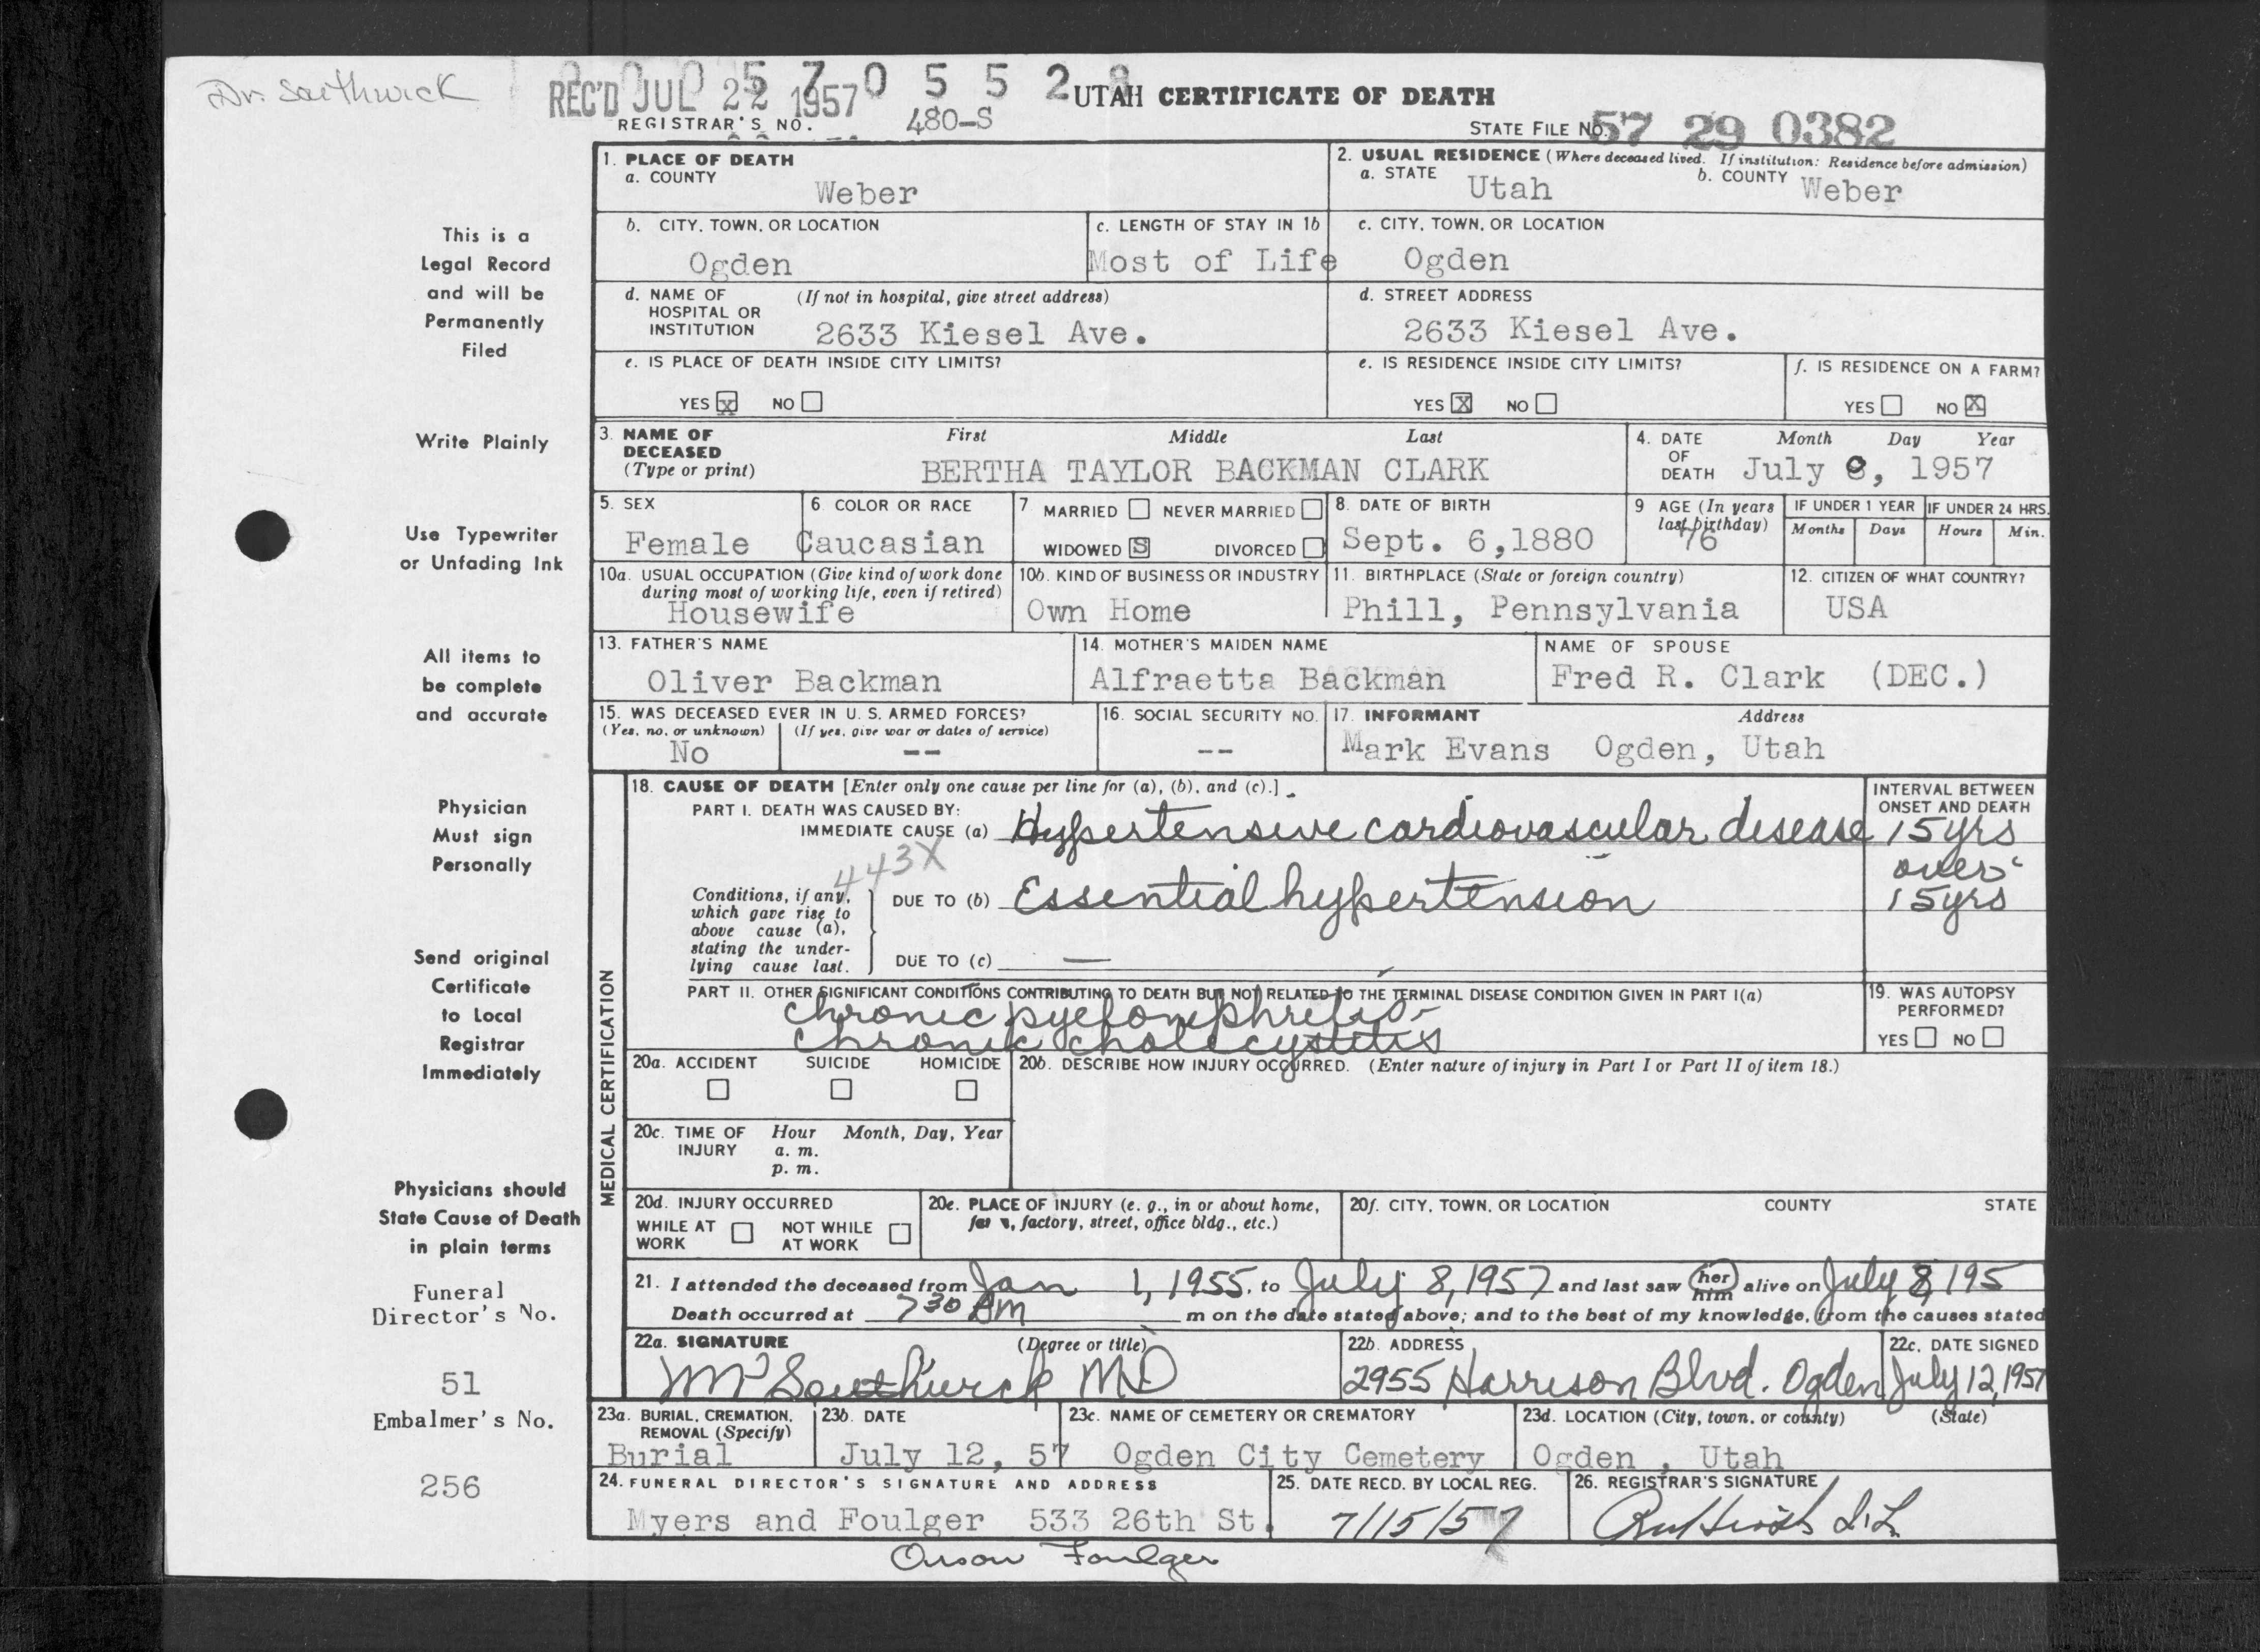 Dr. Southwick
REC'D JUL 22 1957
0 5 5 2
UTAH CERTIFICATE OF DEATH
REGISTRAR'S NO. 480-S
STATE FILE NO. 57 29 0382
This is a
Legal Record
and will be
Permanently
Filed
Write Plainly
Use Typewriter
or Unfading Ink
All items to
be complete
and accurate
Physician
Must sign
Personally
Send original
Certificate
to Local
Registrar
Immediately
Physicians should
State Cause of Death
in plain terms
Funeral
Director's No.
51
Embalmer's No.
256
1. PLACE OF DEATH
a. COUNTY
Weber
2. USUAL RESIDENCE (Where deceased lived. If institution: Residence before admission)
a. STATE Utah b. COUNTY Weber
b. CITY, TOWN, OR LOCATION
Ogden
c. LENGTH OF STAY IN 1b
Most of Life
c. CITY, TOWN, OR LOCATION
Ogden
d. NAME OF (If not in hospital, give street address)
HOSPITAL OR
INSTITUTION 2633 Kiesel Ave.
d. STREET ADDRESS
2633 Kiesel Ave.
e. IS PLACE OF DEATH INSIDE CITY LIMITS?
YES X NO
e. IS RESIDENCE INSIDE CITY LIMITS?
YES X NO
f. IS RESIDENCE ON A FARM?
YES NO X
3. NAME OF DECEASED (Type or print)
First Middle Last
BERTHA TAYLOR BACKMAN CLARK
4. DATE OF DEATH
Month Day Year
July 8, 1957
5. SEX
Female
6. COLOR OR RACE
Caucasian
7 MARRIED NEVER MARRIED
WIDOWED S DIVORCED
8. DATE OF BIRTH
Sept. 6,1880
9 AGE (In years last birthday)
76
IF UNDER 1 YEAR
Months Days
IF UNDER 24 HRS.
Hours Min.
10a. USUAL OCCUPATION (Give kind of work done
during most of working life, even if retired)
Housewife
10b. KIND OF BUSINESS OR INDUSTRY
Own Home
11. BIRTHPLACE (State or foreign country)
Phill, Pennsylvania
12. CITIZEN OF WHAT COUNTRY?
USA
13. FATHER'S NAME
Oliver Backman
14. MOTHER'S MAIDEN NAME
Alfraetta Backman
NAME OF SPOUSE
Fred R. Clark (DEC.)
15. WAS DECEASED EVER IN U. S. ARMED FORCES?
(Yes, no, or unknown) (If yes, give war or dates of service)
No --
16. SOCIAL SECURITY NO.
--
17. INFORMANT Address
Mark Evans Ogden, Utah
MEDICAL CERTIFICATION
18. CAUSE OF DEATH [Enter only one cause per line for (a), (b), and (c).]
PART I. DEATH WAS CAUSED BY:
IMMEDIATE CAUSE (a) Hypertensive cardiovascular disease
INTERVAL BETWEEN
ONSET AND DEATH
15 yrs
443X
Conditions, if any,
which gave rise to
above cause (a),
stating the under-
lying cause last.
DUE TO (b) Essential hypertension
over
15 yrs
DUE TO (c) —
PART II. OTHER SIGNIFICANT CONDITIONS CONTRIBUTING TO DEATH BUT NOT RELATED TO THE TERMINAL DISEASE CONDITION GIVEN IN PART I(a)
chronic pyelonephritis-
chronic cholecystitis
19. WAS AUTOPSY
PERFORMED?
YES NO
20a. ACCIDENT SUICIDE HOMICIDE
20b. DESCRIBE HOW INJURY OCCURRED. (Enter nature of injury in Part I or Part II of item 18.)
20c. TIME OF INJURY
Hour Month, Day, Year
a. m.
p. m.
20d. INJURY OCCURRED
WHILE AT WORK NOT WHILE AT WORK
20e. PLACE OF INJURY (e. g., in or about home,
farm, factory, street, office bldg., etc.)
20f. CITY, TOWN, OR LOCATION COUNTY STATE
21. I attended the deceased from Jan 1, 1955, to July 8, 1957 and last saw her him alive on July 8, 195
Death occurred at 7 30 AM m on the date stated above; and to the best of my knowledge, from the causes stated
22a. SIGNATURE (Degree or title)
Southwick MD
22b. ADDRESS
2955 Harrison Blvd. Ogden
22c. DATE SIGNED
July 12, 1957
23a. BURIAL, CREMATION,
REMOVAL (Specify)
Burial
23b. DATE
July 12, 57
23c. NAME OF CEMETERY OR CREMATORY
Ogden City Cemetery
23d. LOCATION (City, town, or county) (State)
Ogden , Utah
24. FUNERAL DIRECTOR'S SIGNATURE AND ADDRESS
Myers and Foulger 533 26th St.
25. DATE RECD. BY LOCAL REG.
7/15/57
26. REGISTRAR'S SIGNATURE
Orson Foulger